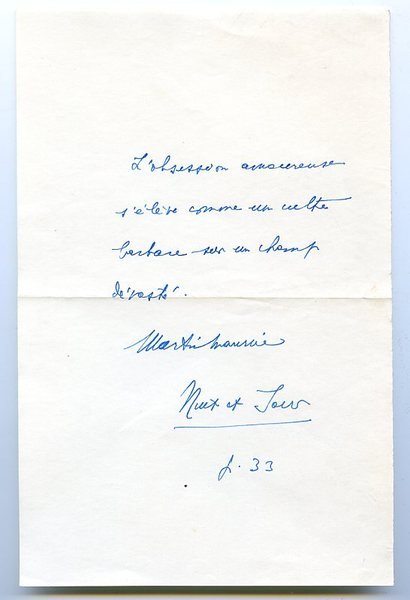 L'obsession amoureuse
s'élève comme un culte
barbare sur un champ
dévasté.
Martin Maurice
Nuit et Jour
p. 33